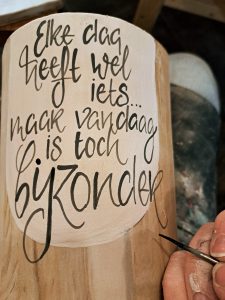 Elke dag
heeft wel
iets...
maar vandaag
is toch
bijzonder